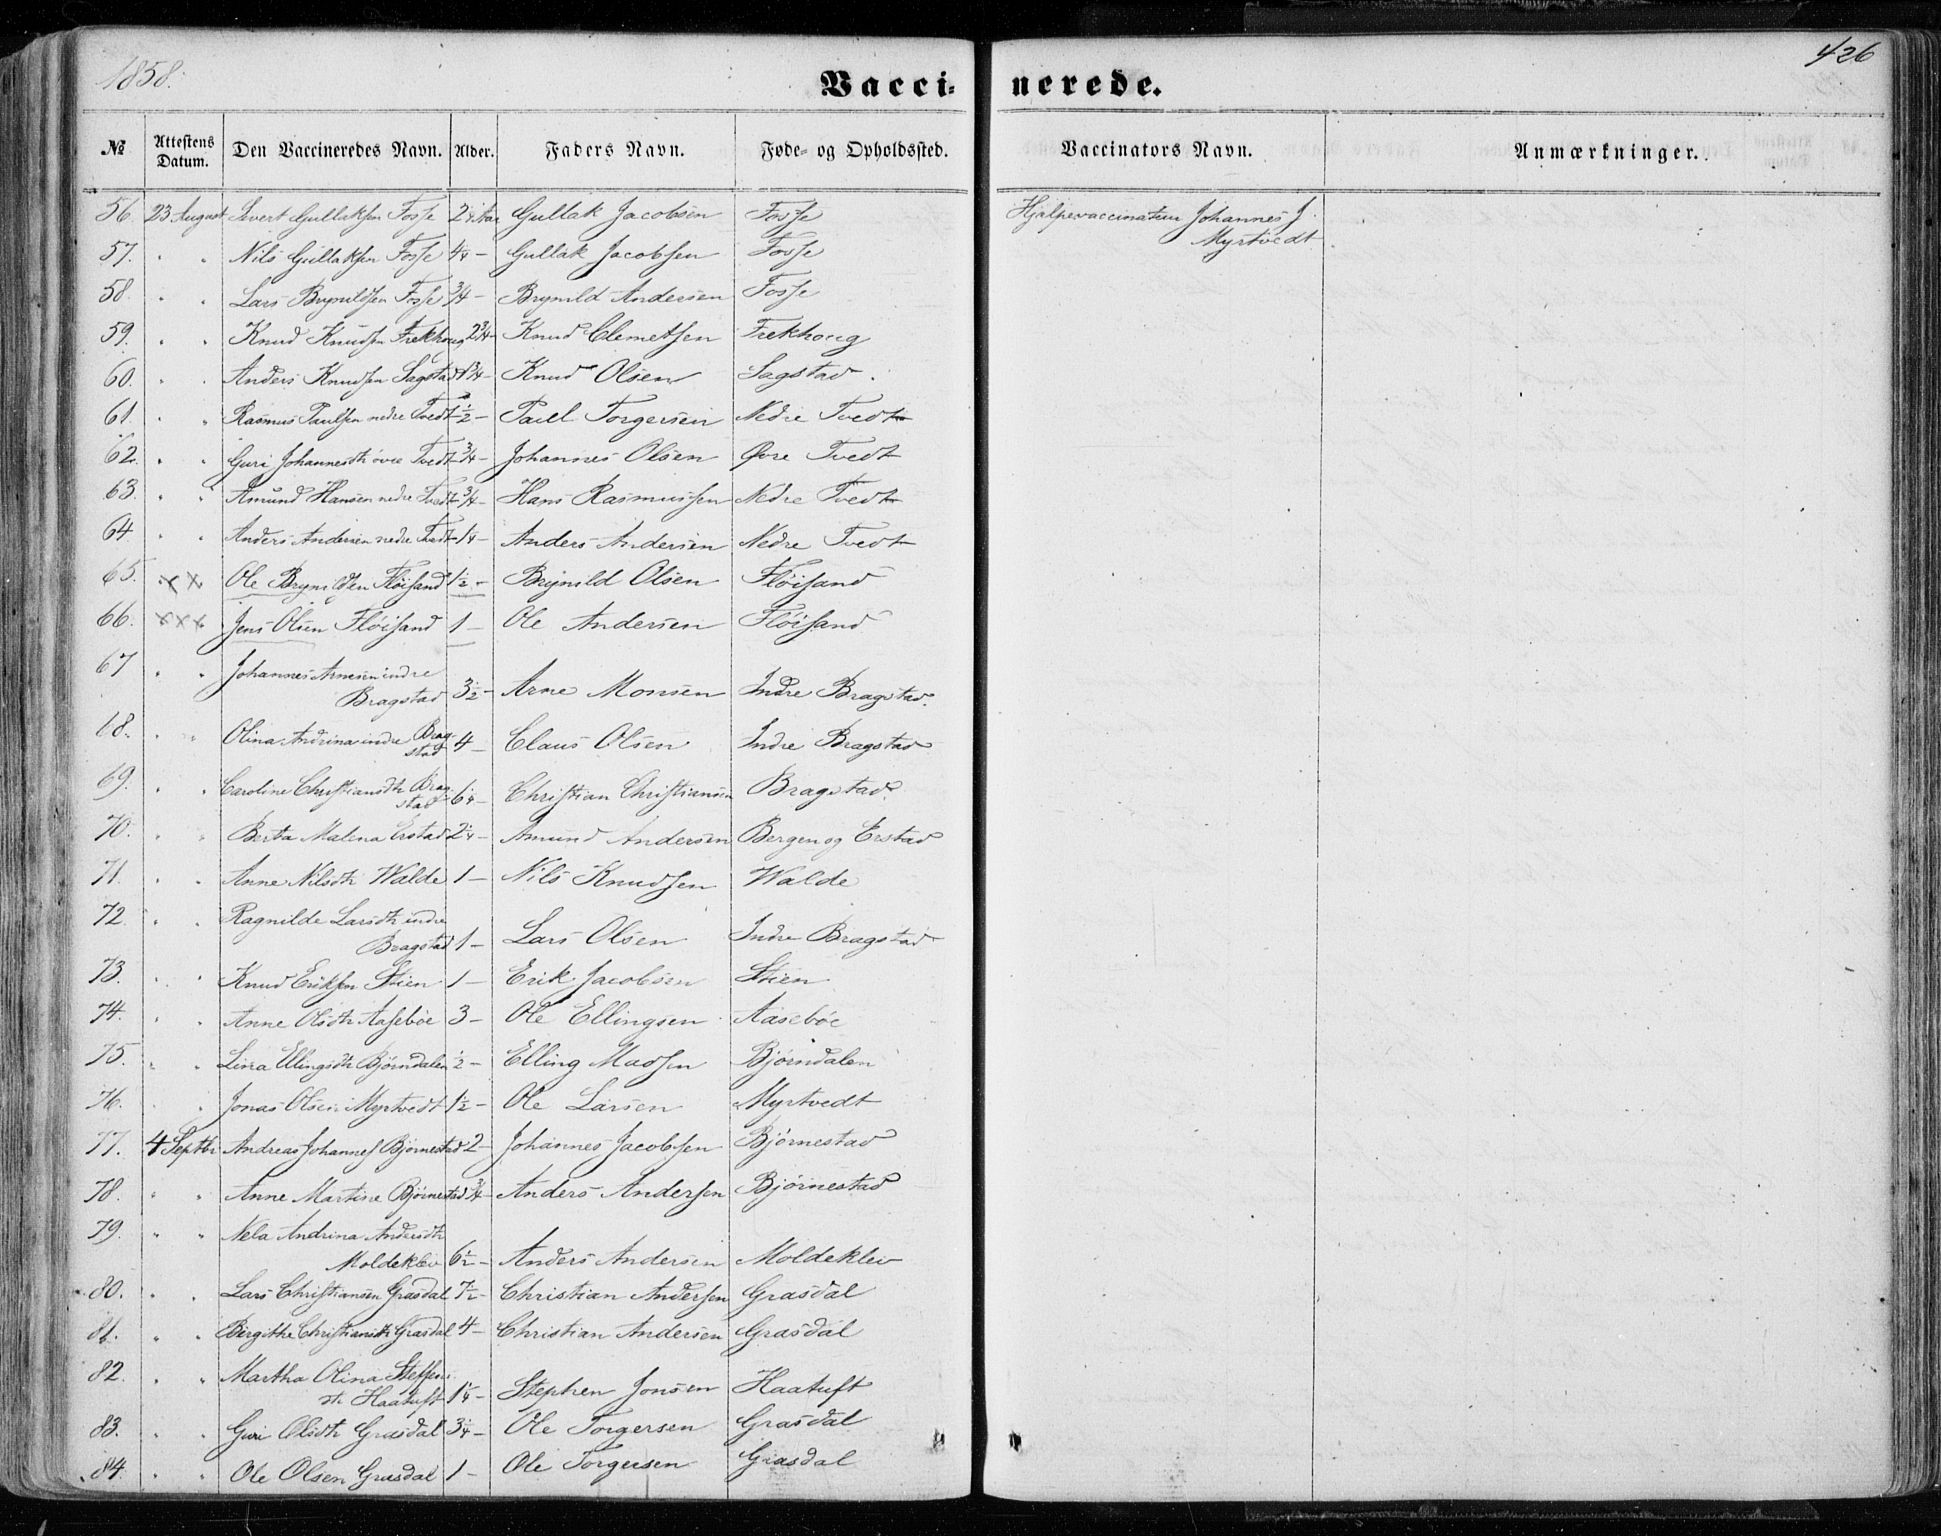 1858.
426
Vacci-nerede.
№ Attestens Datum. Den Vaccineredes Navn. Alder. Faders Navn. Føde- og Opholdssted. Vaccinators Navn. Anmærkninger.
56. 23 August Sivert Gullaksen Fosse 2 1/4 Aar Gullak Jacobsen Fosse Hjelpevaccinateur Johannes J. Myrtvedt.
57. " " Nils Gullaksen Fosse 4 1/4 - Gullak Jacobsen Fosse
58. " " Lars Brynildsen Fosse 3/4 - Brynild Andersen Fosse
59. " " Knud Knudsen Frekhoug 2 3/4 - Knud Clemetsen Frekhoug
60. " " Anders Knudsen Sagstad 1 3/4 - Knud Olsen Sagstad.
61. " " Rasmus Paulsen nedre Tvedt 1/2 - Paul Torgersen Nedre Tvedt
62. " " Guri Johannesdtr øvre Tvedt 3/4 - Johannes Olsen Øvre Tvedt
63. " " Amund Hansen nedre Tvedt 3/4 - Hans Rasmussen Nedre Tvedt
64 " " Anders Andersen nedre Tvedt 1/4 - Anders Andersen Nedre Tvedt
65. xx Ole Brynildsen Fløisand 1 1/2 - Brynild Olsen Fløisand
66. xxx Jens Olsen Fløisand 1 - Ole Andersen Fløisand
67 " " Johannes Arnesen indre
Bragstad 3 1/2 - Arne Monsen Indre Bragstad.
68. " " Olina Andrina indre Brag-
stad 4 - Claus Olsen Indre Bragstad
69. " " Caroline Christiansdtr Brag-
stad 6 1/4 - Christian Christiansen Bragstad.
70. " " Berta Malena Erstad 2 1/4 - Amund Andersen Bergen og Erstad
71. " " Anne Nilsdtr Walde 1 - Nils Knudsen Walde
72 " " Ragnilde Larsdtr indre
Bragstad 1 - Lars Olsen Indre Bragstad
73. " " Knud Eriksen Stien 1 - Erik Jacobsen Stien
74. " " Anne Olsdtr Aasebøe 3 - Ole Ellingsen Aasebøe
75. " " Lina Ellingsdtr Bjørndalen 1/2 - Elling Madsen Bjørndalen
76. " Jonas Olsen Myrtvedt 1 1/2 - Ole Larsen Myrtvedt
77. 4 Septbr Andreas Johannes Bjørnestad 2 - Johannes Jacobsen Bjørnestad
78. " " Anne Martine Bjørnestad 3/4 - Anders Andersen Bjørnestad
79. " " Nela Andrina Andersdtr
Moldeklev 6 1/2 - Anders Andersen Moldeklev
80. " " Lars Christiansen Grasdal 7 1/2 - Christian Andersen Grasdal
81. " " Birgithe Christiansdtr Grasdal 4 - Christian Andersen Grasdal
82. " " Martha Olina Steffens-
dtr Haatuft 1 1/4 - Stephen Jonsen Haatuft
83. " " Guri Olsdtr Grasdal 3 1/4 - Ole Torgersen Grasdal
84. " " Ole Olsen Grasdal 1 - Ole Torgersen Grasdal